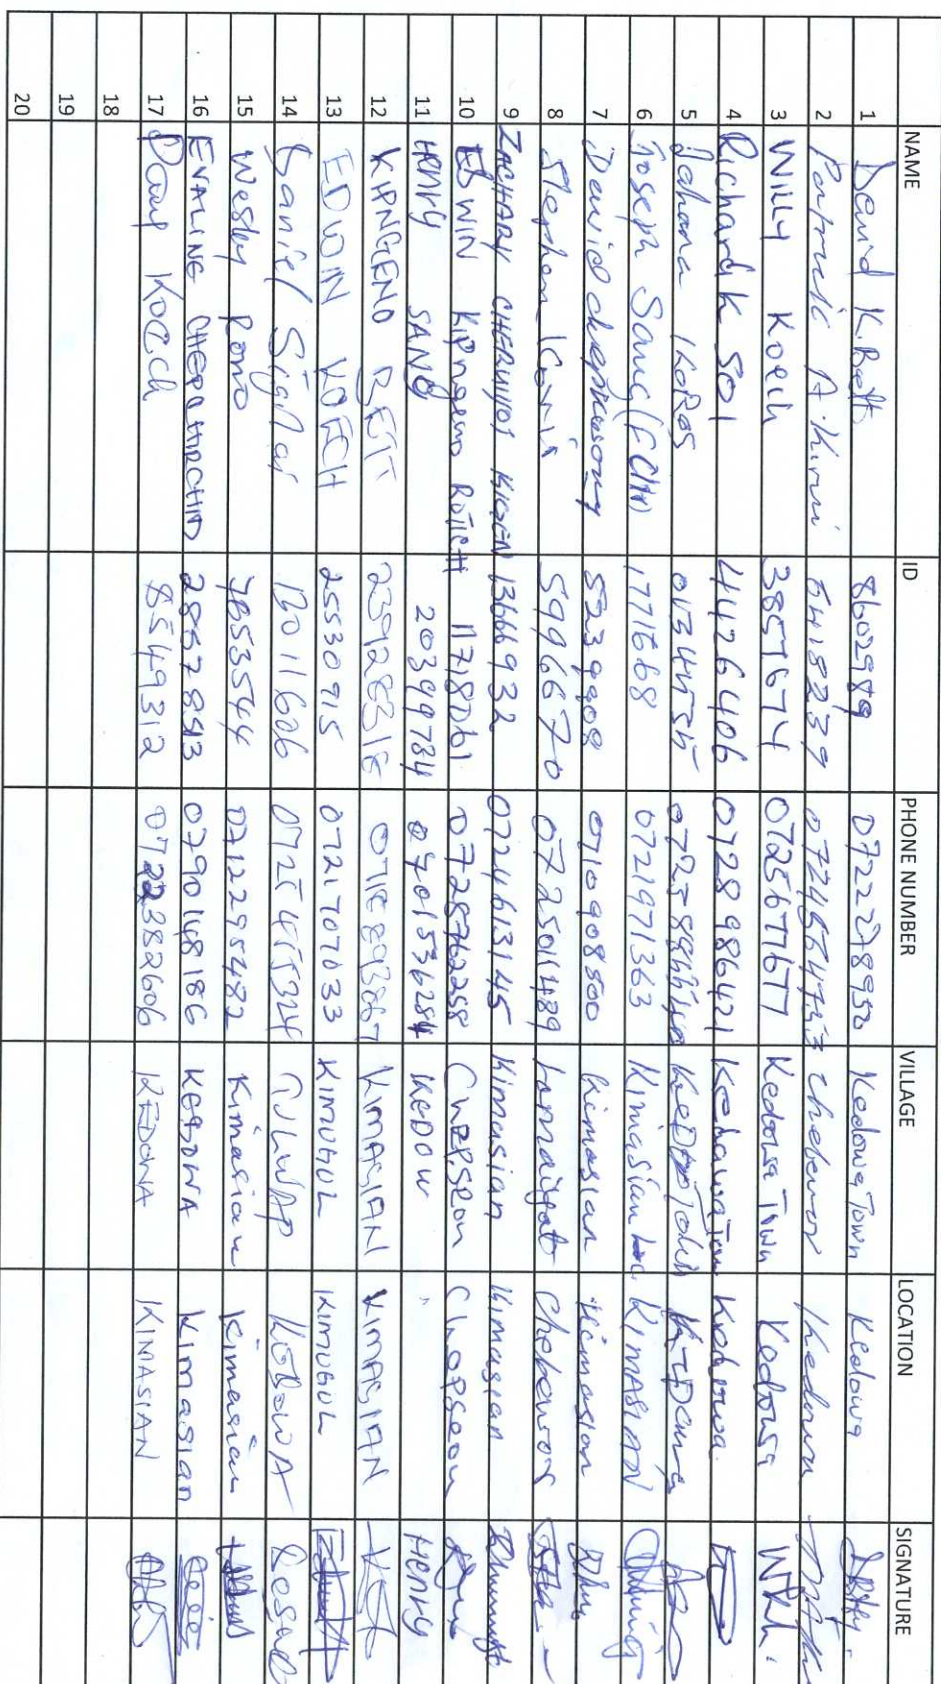 NAME ID PHONE NUMBER VILLAGE LOCATION SIGNATURE
1 David K. Bett 8602989 0722278950 Kedowa Town Kedowa
2 A. Kirui 6418239 0724664753 Chebewor Kedowa
3 Willy Koech 3857674 0725677677 Kedowa Town Kedowa
4 Richard K Soi 4426406 0728986421 Kedowa Town Kedowa
5 Johana Koros
6 Joseph Sang (ECHN) 1771568 0721971363 Kimasian Loc KIMASIAN
7 David chepkwony 5239908 0710908800 Kimasian Kimasian
8 Stephen 5996670 0725011489 Lamaiyat Chebewor
9 ZACHARY CHERUIYOT KIGEN 13666932 0724613145 Kimasian Kimasian
10 EDWIN Kipngeno ROTICH 11718061 0728762258 CHEPSEON Chepseon
11 HENRY SANG 20399784 0701536284 KEDOW " HENRY
12 KIPNGENO BETT 23928318 KIMASIAN KIMASIAN
13 EDWIN KOECH 25530915 0721707033 KIMUGUL KIMUGUL
14 Daniel 13011606 KEDOWA
15 Wesley Rono 7653544 0712295482 Kimasian Kimasian
16 EVALINE CHEPCHIRCHIR 28878 0790148186 KEDOWA Kimasian
17 Koech 8549312 0722382606 KEDOWA KIMASIAN
18
19
20